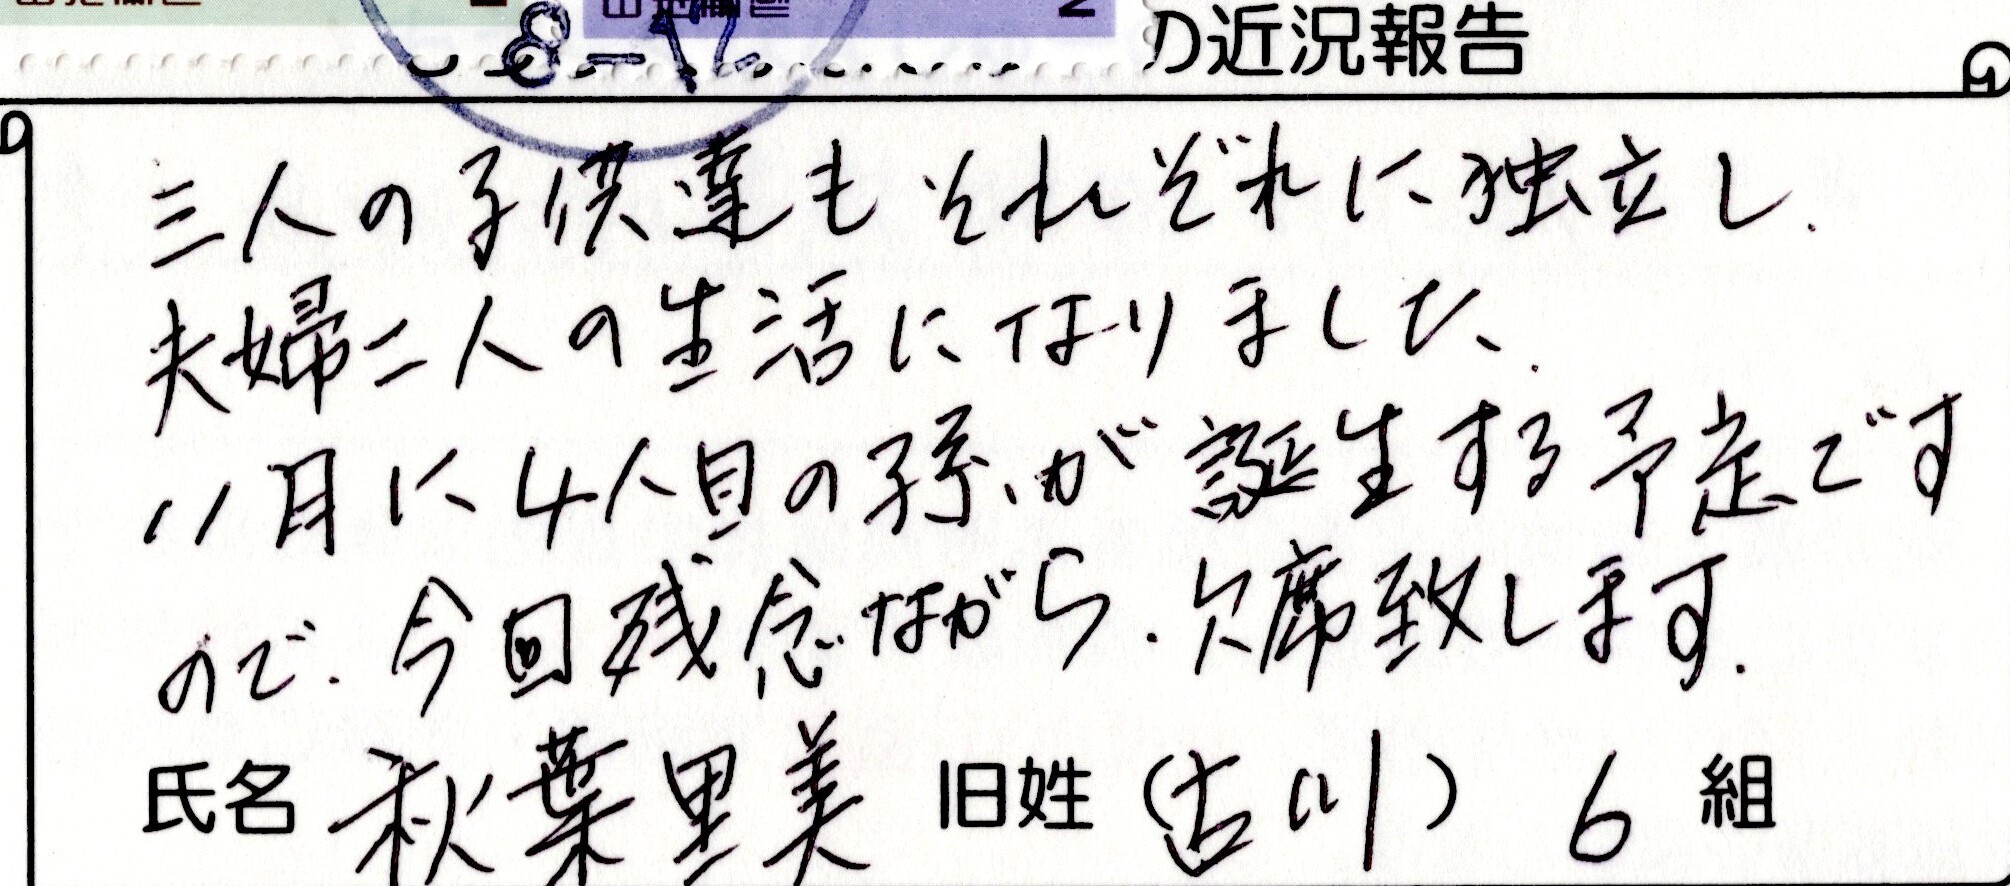 8-12
の近況報告
三人の子供達もそれぞれに独立し.
夫婦二人の生活になりました.
11月に4人目の孫が誕生する予定です
ので.今回残念ながら.欠席致します.
氏名 秋葉里美 旧姓(古川) 6 組